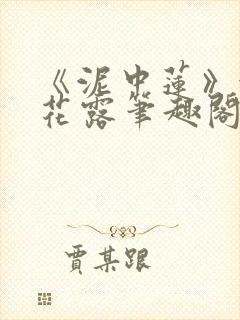 《泥中莲》
花露笔趣阁
贾某跟